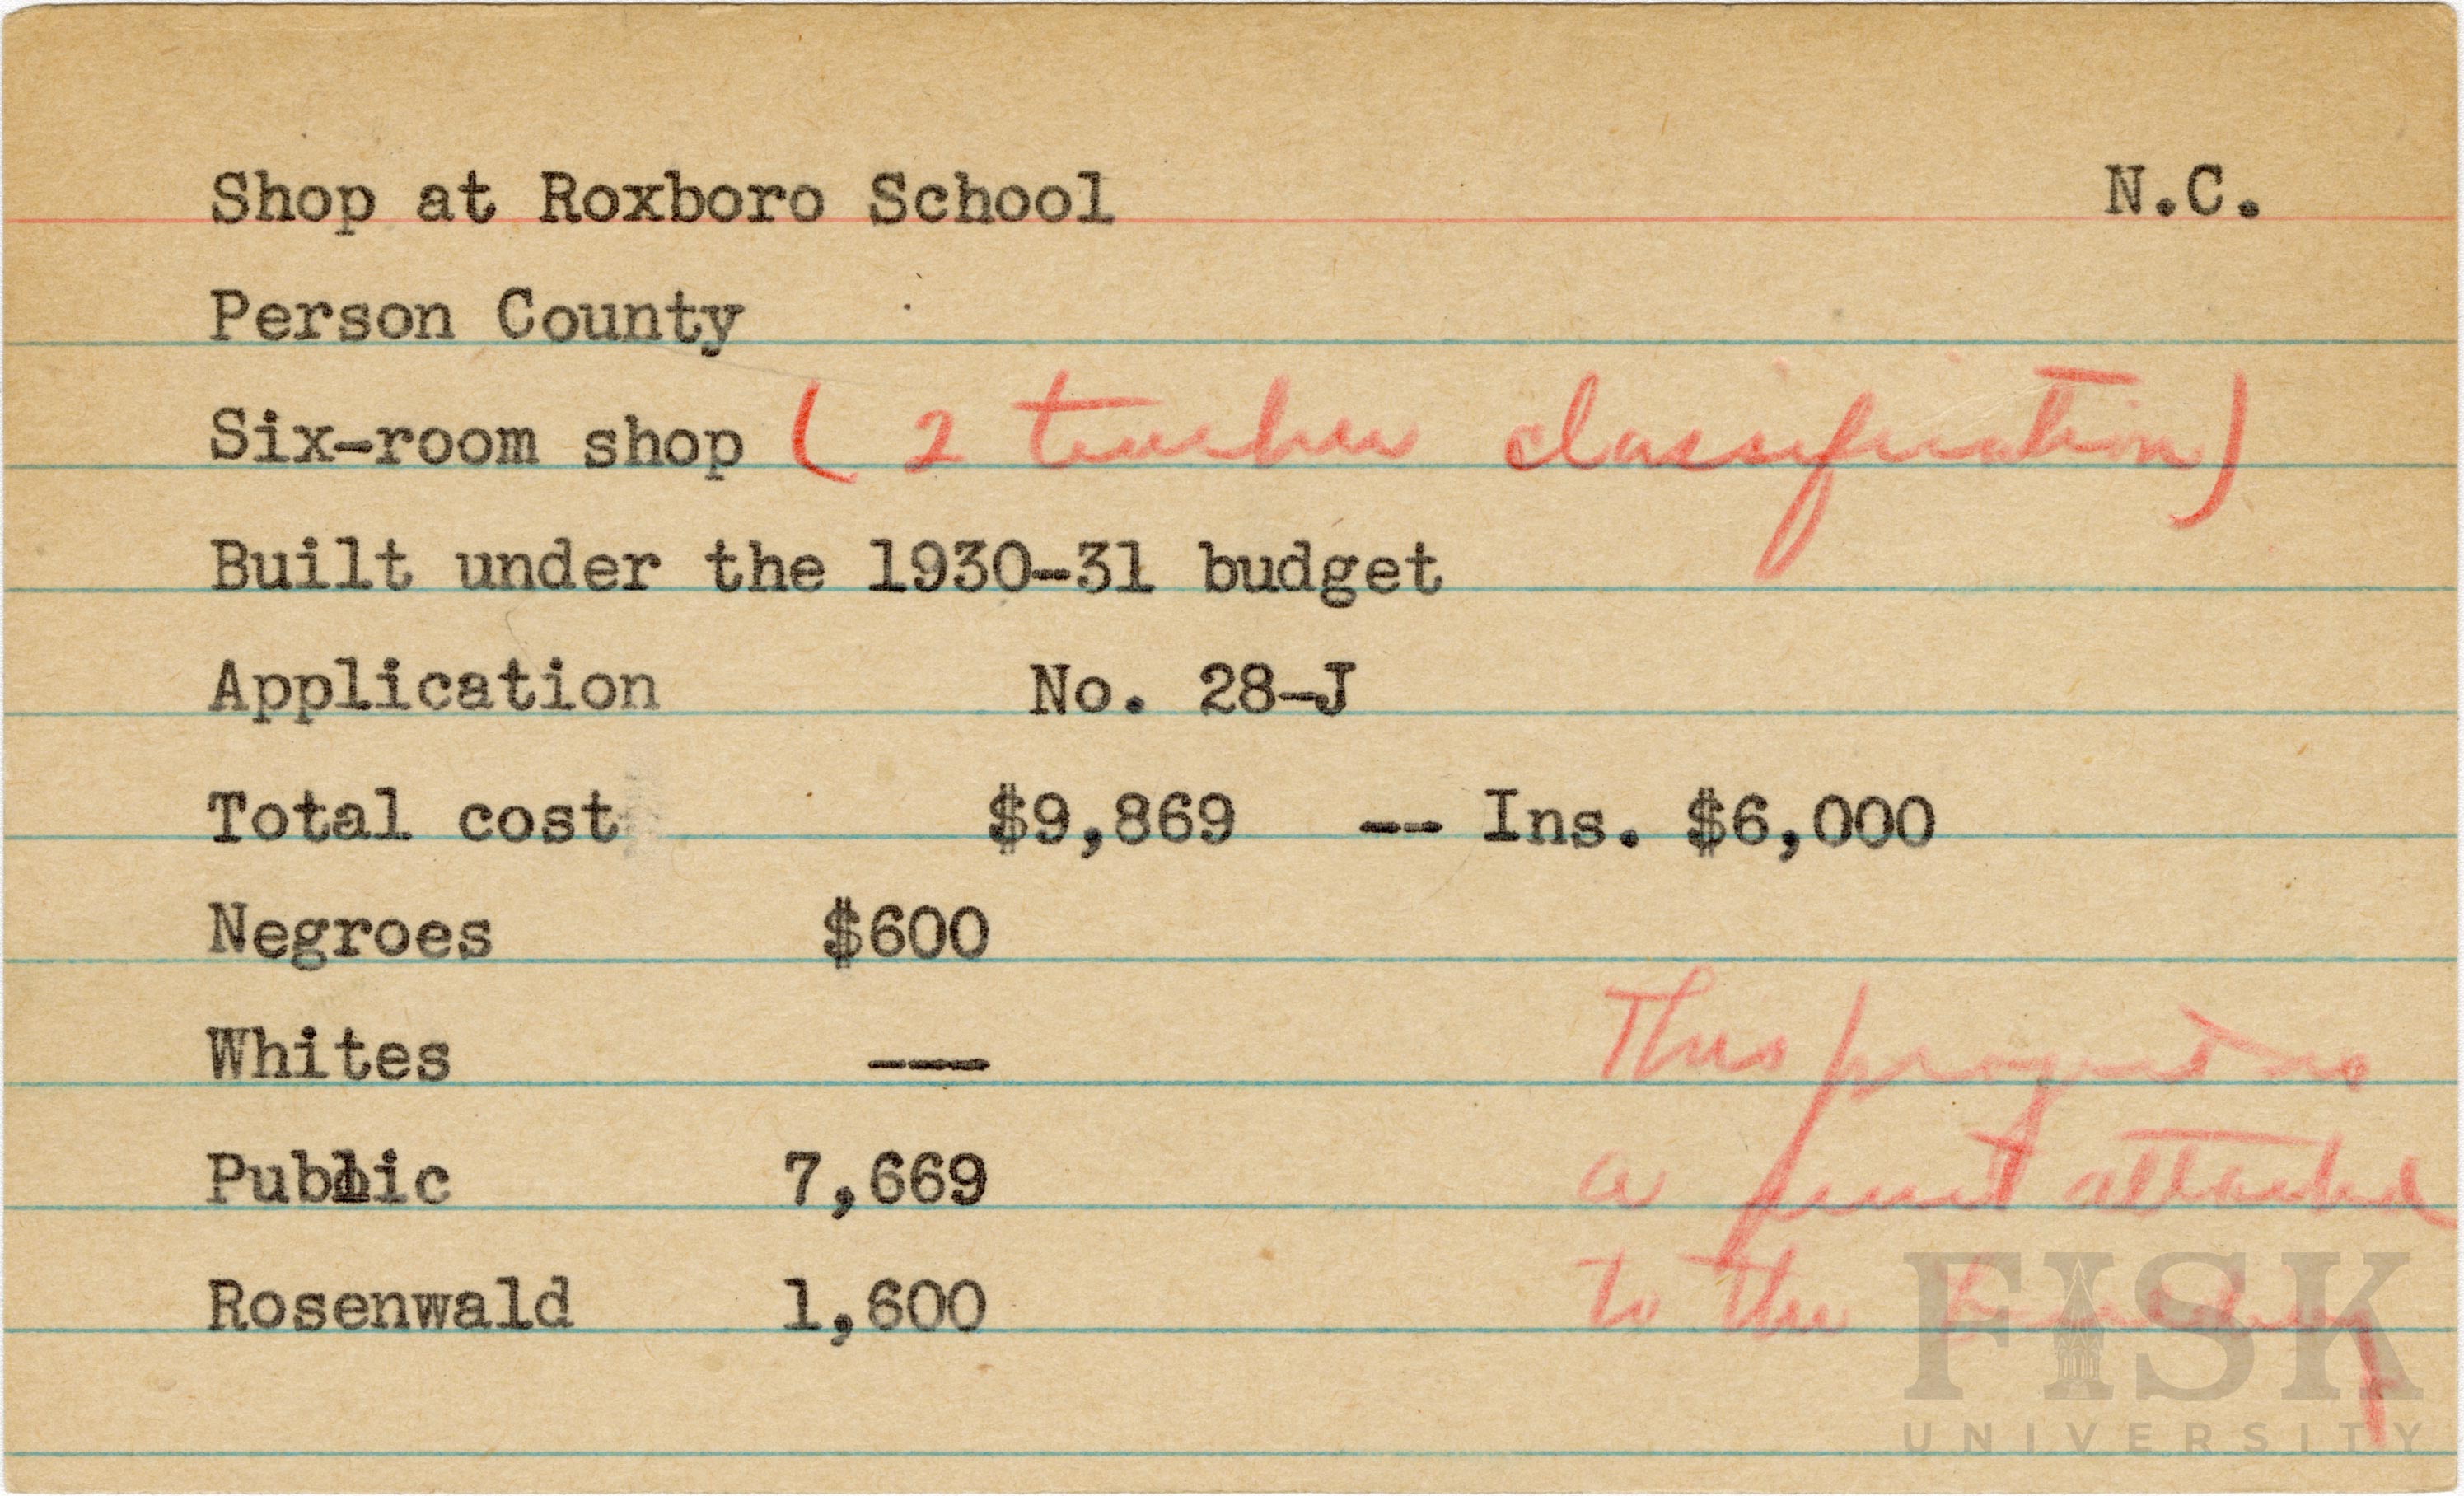 Shop at Roxboro School N.C.
Person County
Six-room shop (2 teacher classification)
Built under the 1930-31 budget
Application No. 28-J
Total cost $9,869 -- Ins. $6,000
Negroes $600
Whites ---
Public 7,669
Rosenwald 1,600
This project is
a attached
to the
FISK
UNIVERSITY